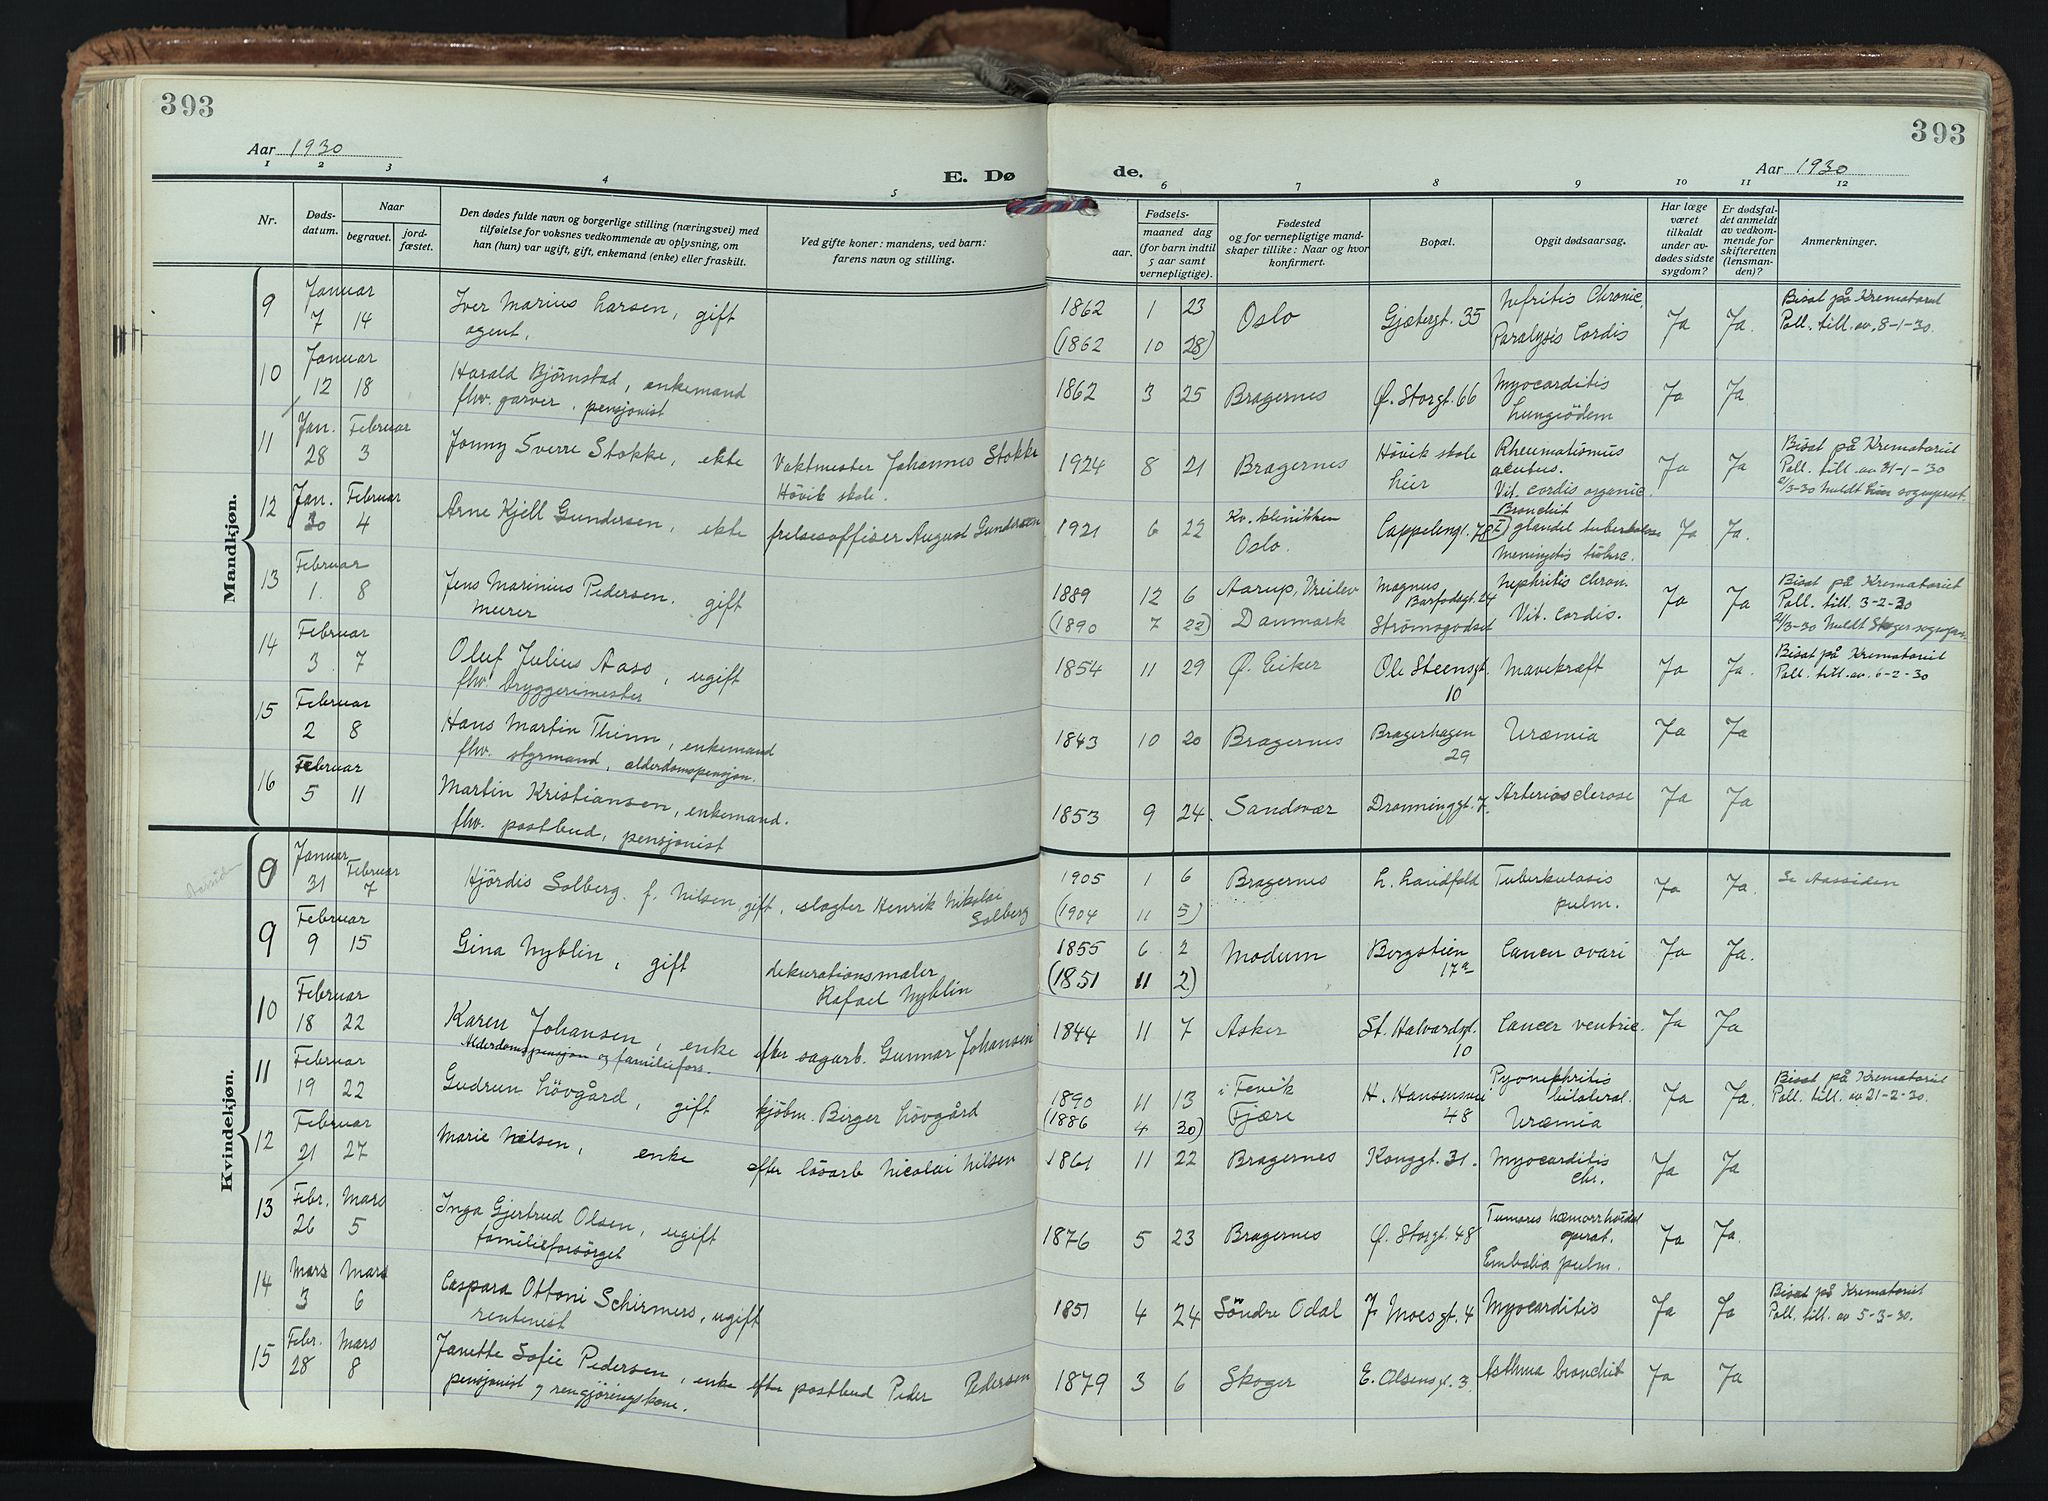 393
Aar 1930
E. Dø
1 2 3 4 5
Nr.
Døds-
datum.
Naar
begravet.
jord-
fæstet.
Den dødes fulde navn og borgerlige stilling (næringsvei) med
tilføielse for voksnes vedkommende av oplysning, om
han (hun) var ugift, gift, enkemand (enke) eller fraskilt.
Ved gifte koner: mandens, ved barn:
farens navn og stilling.
Mandkjøn.
9 Januar
7 14
Iver Marius Larsen, gift
agent.
10 Januar
12 18
Harald Bjørnstad, enkemand
fhv. garver, pensjonist
11 Jan. Februar
28 3
Jonny Sverre Stokke, ekte Vaktmester Johannes Stokke
Hövik skole.
12 Jan. Februar
30 4
Arne Kjell Gundersen, ekte frelsesoffiser August Gundersen
13 Februar
1. 8
Jens Marinius Pedersen. gift
murer
14 Februar
3. 7
Oluf Julius Aaso, ugift
fhv. bryggerimester
15 Februar
2 8
Hans Martin Thinn, enkemand
fhv. styrmand, alderdomspensjon.
16 Februar
5 11
Martin Kristiansen, enkemand.
fhv. postbud, pensjonist
Kvindekjøn.
9 Januar Februar
31 7
Hjördis Solberg. f. Nilsen gift, slagter Henrik Nikolai
Solberg
9 Februar
9 15
Gina Nyblin, gift dekorationsmaler
Rafael Nyblin
10 Februar
18 22
Karen Johansen, enke efter sagarb. Gunnar Johansen
Alderdomspensjon og familiefors.
11 Februar
19 22
Gudrun Lövgård, gift kjöbm. Birger Lövgård
12 Februar
21 27
Marie Nilsen, enke efter lösarb Nicolai Nilsen
13 Febr. Mars
26 5
Inga Gjertrud Olsen, ugift
familieforsörget
14 Mars Mars
3 6
Caspara Ottoni Schirmers, ugift
rentenist
15 Febr. Mars
28 8
Janette Sofie Pedersen, enke efter postbud Peder Pedersen
pensjonist og rengjöringskone.
393
de.
Aar 1930
6 7 8 9 10 11 12
Fødsels-
aar.
maaned dag
(for barn indtil
5 aar samt
vernepligtige).
Fødested
og for vernepligtige mand-
skaper tillike: Naar og hvor
konfirmert.
Bopæl.
Opgit dødsaarsag.
Har læge
været
tilkaldt
under av-
dødes sidste
sygdom?
Er dødsfal-
det anmeldt
av vedkom-
mende for
skifteretten
(lensman-
den)?
Anmerkninger.
1862 1 23 Oslo Gjetergt. 35 Nefritis Chronic. Ja Ja. Bisat på Krematoriet
(1862 10 28) Paralysis Cordis Poll. till. av. 8-1-30.
1862 3 25 Bragernes Ø. Storgt. 66 Myocarditis Ja Ja
Lungeödem
1924 8 21 Bragernes Hövik skole Rheumatismus Ja Ja Bisat på Krematoriet
her acutus. Poll. till. av 31-1-30
Vit. cordis organic.
1921 6 22 Kv. klinikken Cappelensgt. Bronchit Ja Ja.
Oslo. glandel tuberkulose
Meningitis tuberc.
1889 12 6 Aarup, Vreilev Magnus Nephritis chron. Ja Ja Bisat på Krematoriet
Barfodsgt. 24 Poll. till. 3-2-30
(1890 7 22) Danmark Strömsgodset Vit. cordis.
1854 11 29 Ø. Eiker Ole Steensgt. Mavekræft Ja Ja. Bisat på Krematoriet
10 Poll. till. av. 6-2-30
1843 10 20 Bragernes Bragerhagen Uræmia Ja Ja
29
1853 9 24. Sandsvær Dronninggt. 7. Arteriosclerose Ja Ja
1905 1 6 Bragernes L. Landfald Tuberkulosis Ja Ja. Se Aassiden
(1904 11 5) pulm.
1855 6 2 Modum Bergstien Cancer ovari Ja Ja.
(1851 11 2) 17a
1844 11 7 Asker St. Halvardsgt. Cancer ventric. Ja Ja
10
1890 11 13 i Fevik H. Hansensvei Pyonephritis Ja Ja. Bisat på Krematoriet
bilateral. Poll. till. av 21-2-30.
(1886 4 30) Fjære 48 Uræmia
1861 11 22 Bragernes Konggt. 31. Myocarditis Ja Ja
chr.
1876 5 23 Bragernes Ø. Storgt. 48 Tumores hæmorrhoidal Ja Ja.
operat.
Embolia pulm.
1851 4 24 Söndre Odal J. Moesgt. 4 Myocarditis Ja Ja Bisat på Krematoriet
Poll. till. av 5-3-30.
1879 3 6 Skoger E. Olsensgt. 3. Asthma bronchit Ja Ja